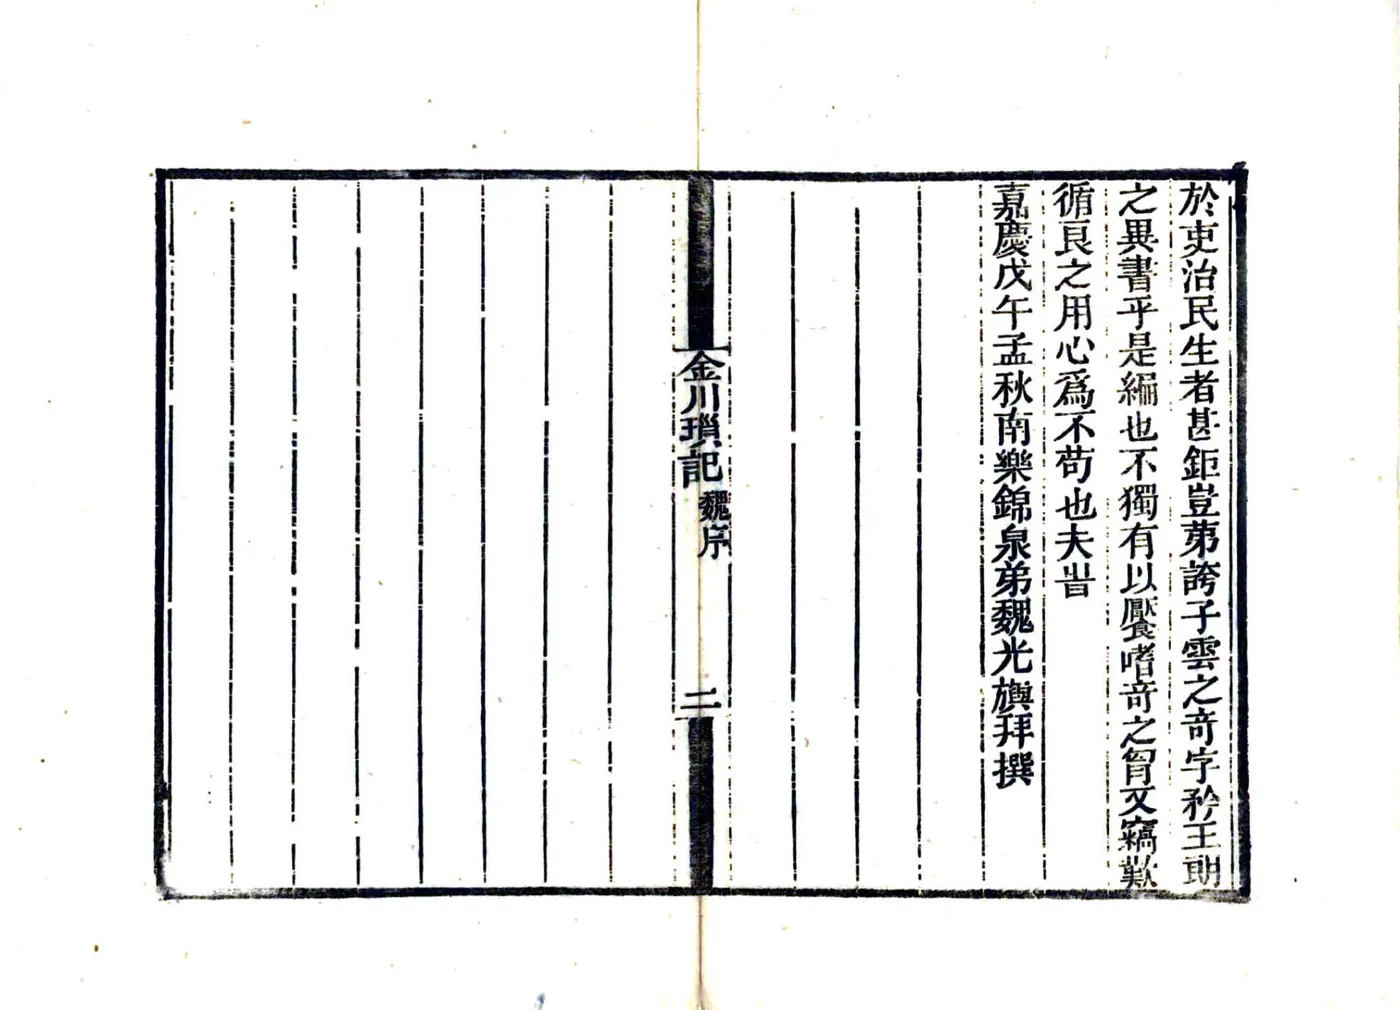 於吏治民生者甚鉅豈苐誇子雲之奇字矜王朗
之異書乎是編也不獨有以饜嗜奇之胷又竊歎
循良之用心爲不苟也夫旹
嘉慶戊午孟秋南樂錦泉弟魏光旟拜撰
金川瑣記
魏序
二